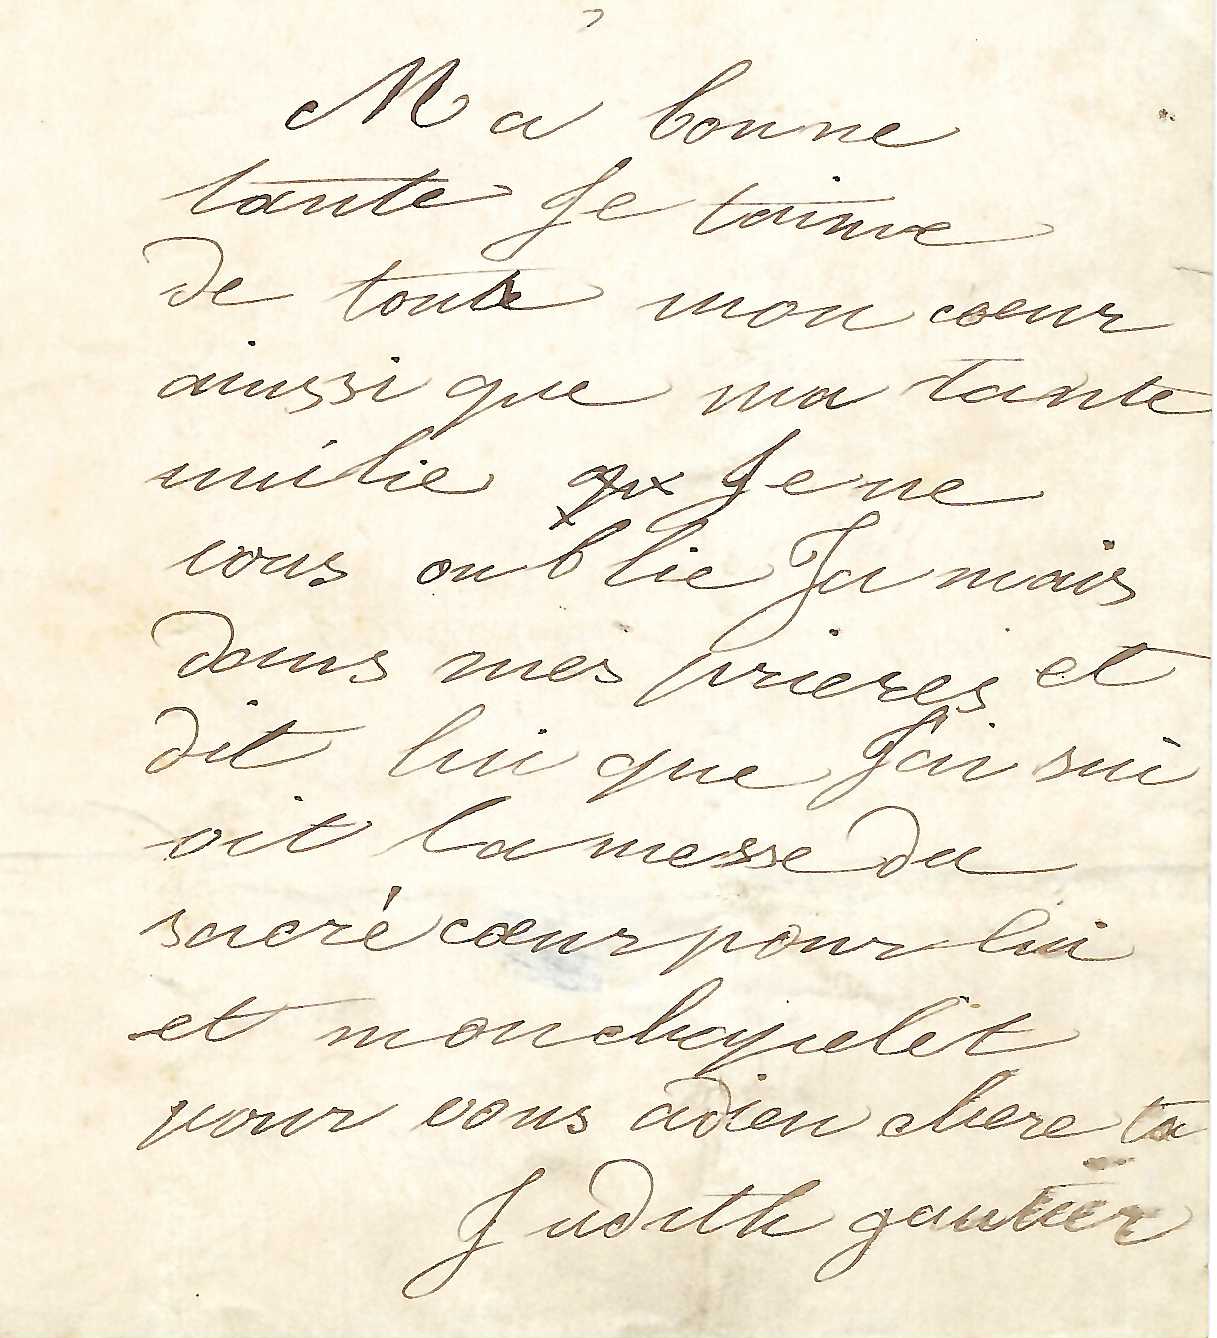 Ma bonne
tante Je taime
de toute mon cœur
ainssi que ma tante
milie Je ne
vous oublie Ja mais
dans mes prieres et
dit lui que J'ai sui
vit la messe du
sacré cœur pour lui
et mon chapelet
pour vous adieu chere ta
Judith gautier